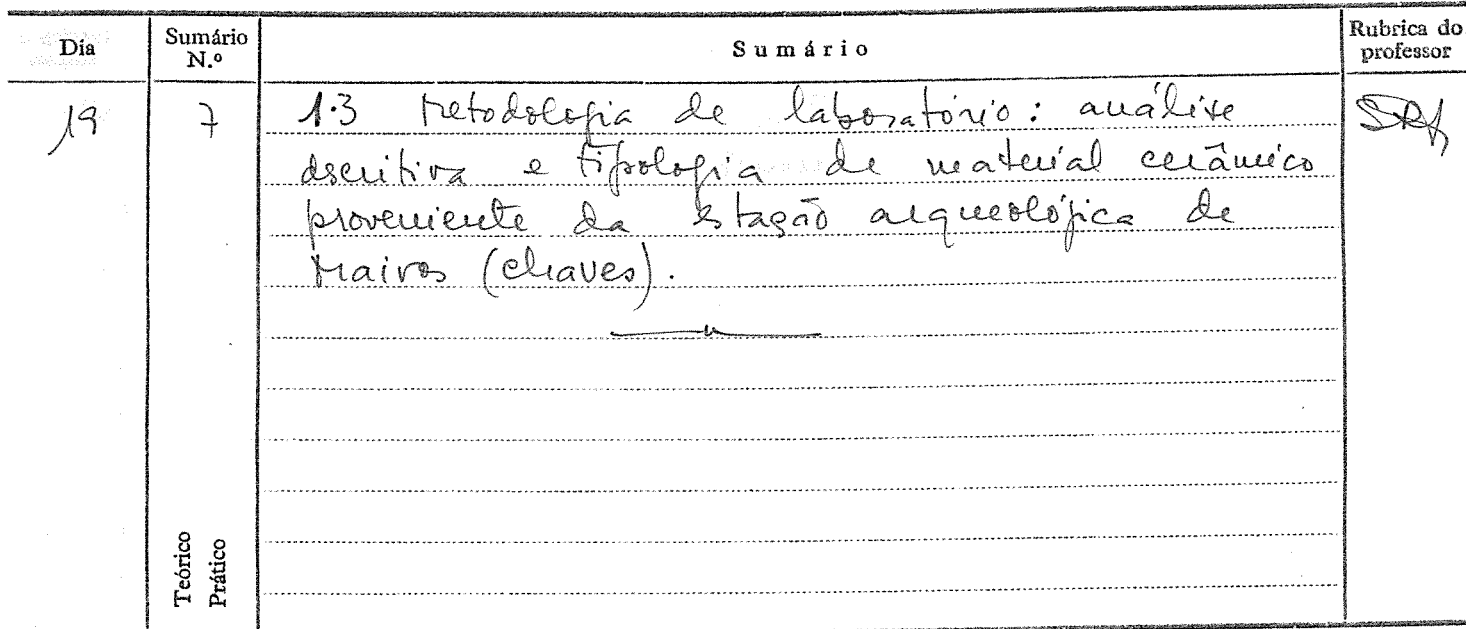 Dia
Sumário N.º
Sumário
Rubrica do professor
19
7
1.3 Metodologia de laboratório: análise
descritiva e tipologia de material cerâmico
proveniente da estação arqueológica de
Mairos (Chaves).
SRA
Teórico
Prático